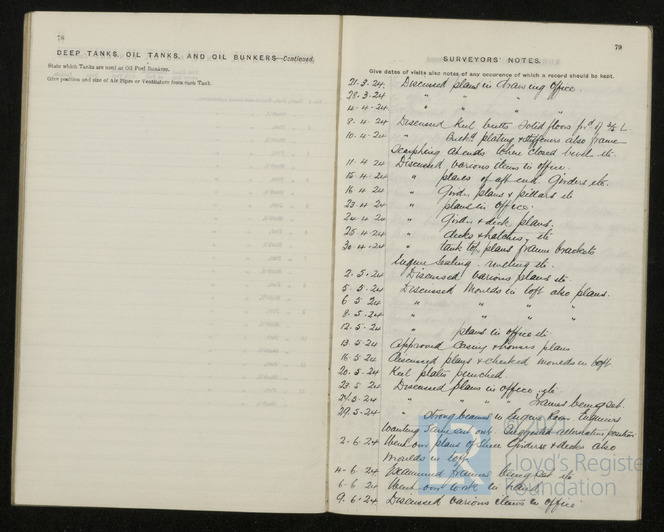 78
DEEP TANKS, OIL TANKS, AND OIL BUNKERS—Continued.
State which Tanks are used as Oil Fuel Bunkers.
Give position and size of Air Pipes or Ventilators from each Tank.
79
SURVEYORS' NOTES.
Give dates of visits also notes of any occurence of which a record should be kept.
21.3.24 Discussed plans in drawing office
28.3.24 " " " "
4.4.24 " " " "
8.4.24 Discussed Keel butts Solid floors for'd of 3/5 L
10.4.24 " plating & stiffeners also frame
Scarphing at ends where closed bevel etc
11.4.24 Discussed various items in office
15.4.24 " plans of aft end. Girders etc.
16.4.24 " Girder plans & pillars etc
23.4.24 " plans in office.
24.4.24 " Girder & deck plans.
25.4.24 " decks & hatches, etc
30.4.24 " tank top, plans frame brackets
Engine Seating. etc.
2.5.24 Discussed various plans etc.
5.5.24 Discussed Moulds in loft also plans.
6.5.24 " " " "
8.5.24 " " " "
12.5.24 " plans in office etc
13.5.24 Approved Casing & houses plans
16.5.24 Discussed plans & checked moulds in loft
20.5.24 Keel plates punched.
23.5.24 Discussed plans in office, etc.
" " " " frames being set.
29.5.24 " Strong beams in Engine Room Engineers
wanting same cut out. Suggested alternative position
2.6.24 Went over plans of Girders & decks also
moulds in loft.
4.6.24 Examined frames being set etc
6.6.24 Went over work in hand.
9.6.24 Discussed various items in office
LR
Lloyd's Register
Foundation